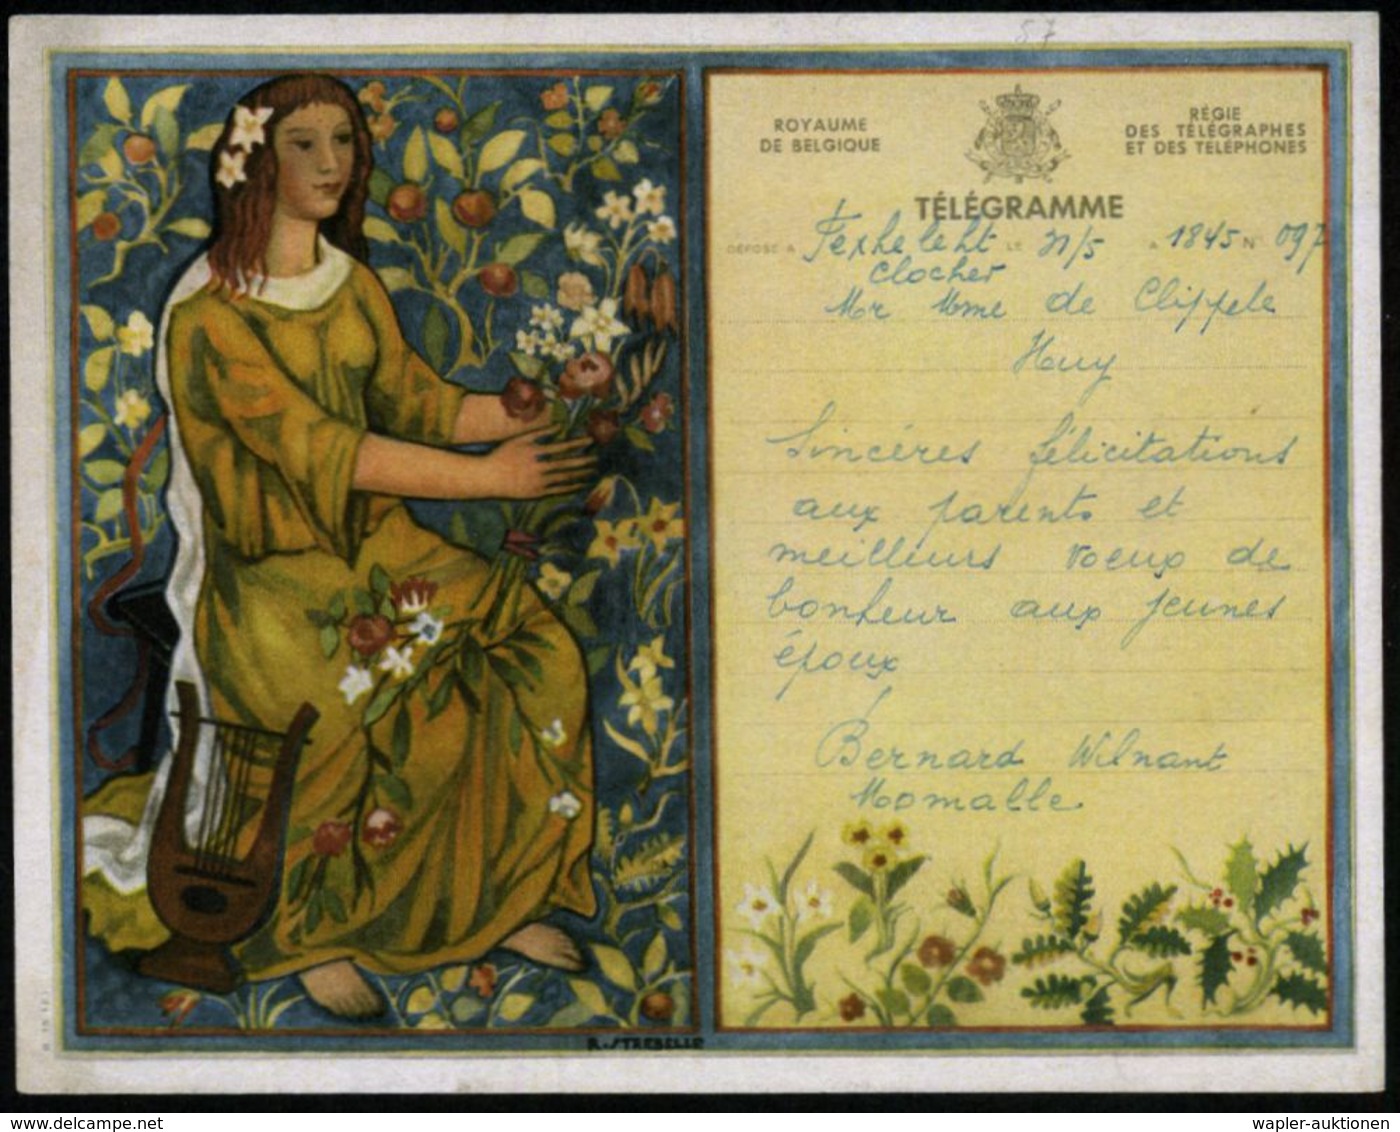 57
ROYAUME
DE BELGIQUE
RÉGIE
DES TÉLÉGRAPHES
ET DES TÉLÉPHONES
TÉLÉGRAMME
DÉPOSÉ A Fexhe le ht LE 31/5 A 1845 N° 097
Clocher
Mr Mme de Clippele
Huy
Sincères félicitations
aux parents et
meilleurs voeux de
bonheur aux jeunes
époux
Bernard Wilnant
Momalle
R. STREBELLE
wapler-auktionen